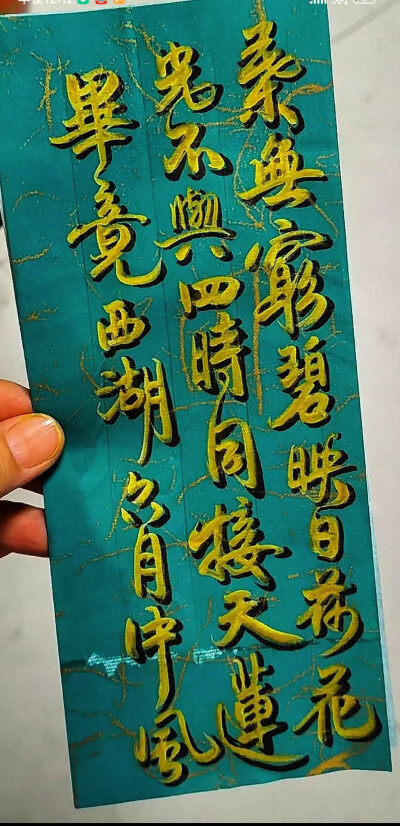 畢竟西湖六月中風
光不與四時同接天蓮
葉無窮碧映日荷花